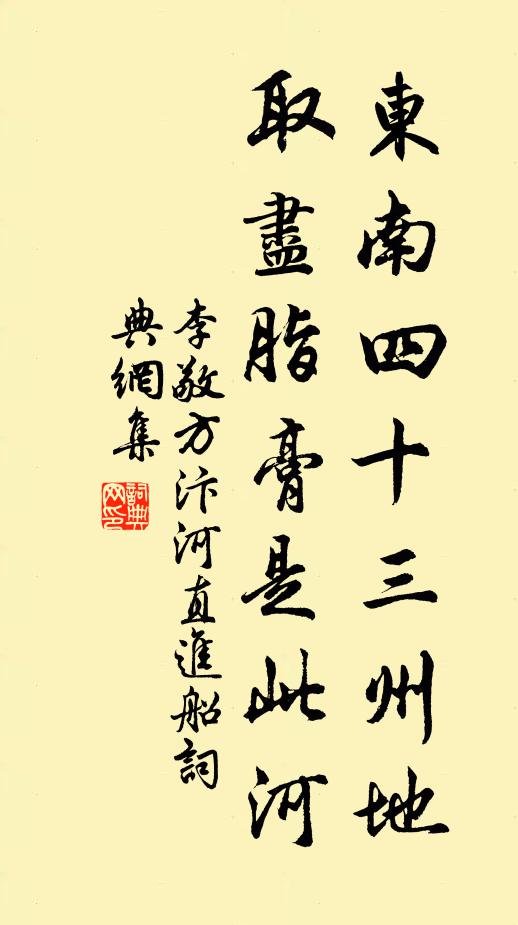 東南四十三州地
取盡脂膏是此河
李敬方汴河直進船詞
典網集
詞典網印